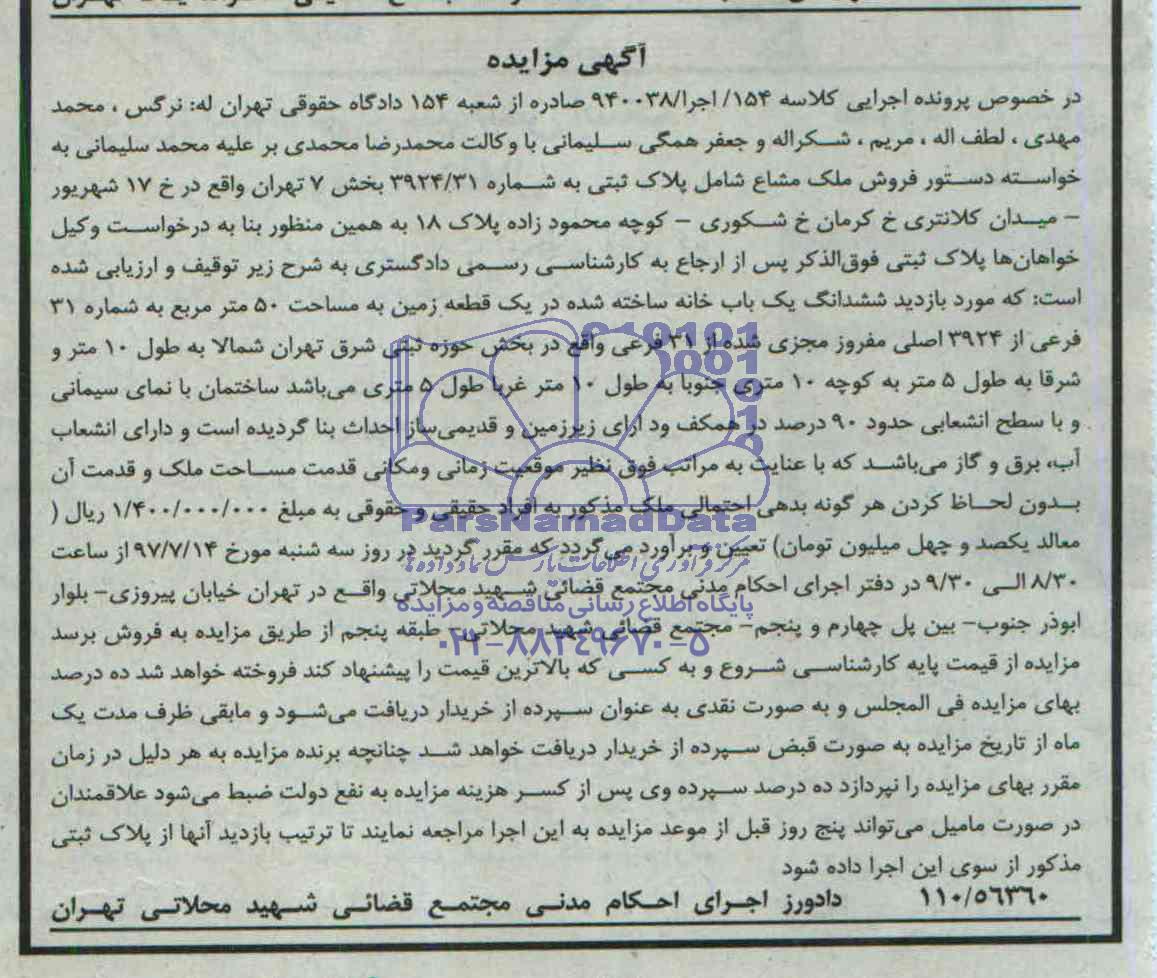 آگهی مزایده
در خصوص پرونده اجرایی کلاسه ۱۵۴/ اجرا/۹۴۰۰۳۸ صادره از شعبه ۱۵۴ دادگاه حقوقی تهران له: نرگس ، محمد
مهدی ، لطف اله ، مریم ، شکراله و جعفر همگی سلیمانی با وکالت محمدرضا محمدی بر علیه محمد سلیمانی به
خواسته دستور فروش ملک مشاع شامل پلاک ثبتی به شماره ۳۹۲۴/۳۱ بخش ۷ تهران واقع در خ ۱۷ شهریور
– میدان کلانتری خ کرمان خ شکوری – کوچه محمود زاده پلاک ۱۸ به همین منظور بنا به درخواست وکیل
خواهان‌ها پلاک ثبتی فوق‌الذکر پس از ارجاع به کارشناسی رسمی دادگستری به شرح زیر توقیف و ارزیابی شده
است: که مورد بازدید ششدانگ یک باب خانه ساخته شده در یک قطعه زمین به مساحت ۵۰ متر مربع به شماره ۳۱
فرعی از ۳۹۲۴ اصلی مفروز مجزی شده از ۳۱ فرعی واقع در بخش حوزه ثبتی شرق تهران شمالا به طول ۱۰ متر و
شرقا به طول ۵ متر به کوچه ۱۰ متری جنوبا به طول ۱۰ متر غربا طول ۵ متری می‌باشد ساختمان با نمای سیمانی
و با سطح انشعابی حدود ۹۰ درصد در همکف ود ارای زیرزمین و قدیمی‌ساز احداث بنا گردیده است و دارای انشعاب
آب، برق و گاز می‌باشد که با عنایت به مراتب فوق نظیر موقعیت زمانی ومکانی قدمت مساحت ملک و قدمت آن
بدون لحاظ کردن هر گونه بدهی احتمالی ملک مذکور به افراد حقیقی و حقوقی به مبلغ ۱/۴۰۰/۰۰۰/۰۰۰ ریال (
معالد یکصد و چهل میلیون تومان) تعیین و برآورد می‌گردد که مقرر گردید در روز سه شنبه مورخ ۹۷/۷/۱۴ از ساعت
۸/۳۰ الی ۹/۳۰ در دفتر اجرای احکام مدنی مجتمع قضائی شهید محلاتی واقع در تهران خیابان پیروزی– بلوار
ابوذر جنوب– بین پل چهارم و پنجم– مجتمع قضائی شهید محلاتی– طبقه پنجم از طریق مزایده به فروش برسد
مزایده از قیمت پایه کارشناسی شروع و به کسی که بالاترین قیمت را پیشنهاد کند فروخته خواهد شد ده درصد
بهای مزایده فی المجلس و به صورت نقدی به عنوان سپرده از خریدار دریافت می‌شود و مابقی ظرف مدت یک
ماه از تاریخ مزایده به صورت قبض سپرده از خریدار دریافت خواهد شد چنانچه برنده مزایده به هر دلیل در زمان
مقرر بهای مزایده را نپردازد ده درصد سپرده وی پس از کسر هزینه مزایده به نفع دولت ضبط می‌شود علاقمندان
در صورت مامیل می‌تواند پنج روز قبل از موعد مزایده به این اجرا مراجعه نمایند تا ترتیب بازدید آنها از پلاک ثبتی
مذکور از سوی این اجرا داده شود
۱۱۰/۵۶۳۶۰ دادورز اجرای احکام مدنی مجتمع قضائی شهید محلاتی تهران
ParsNamadData
مرکز فرآوری اطلاعات پارس نماد داده ها
پایگاه اطلاع رسانی مناقصه و مزایده
۰۲۱-۸۸۳۴۹۶۷۰-۵